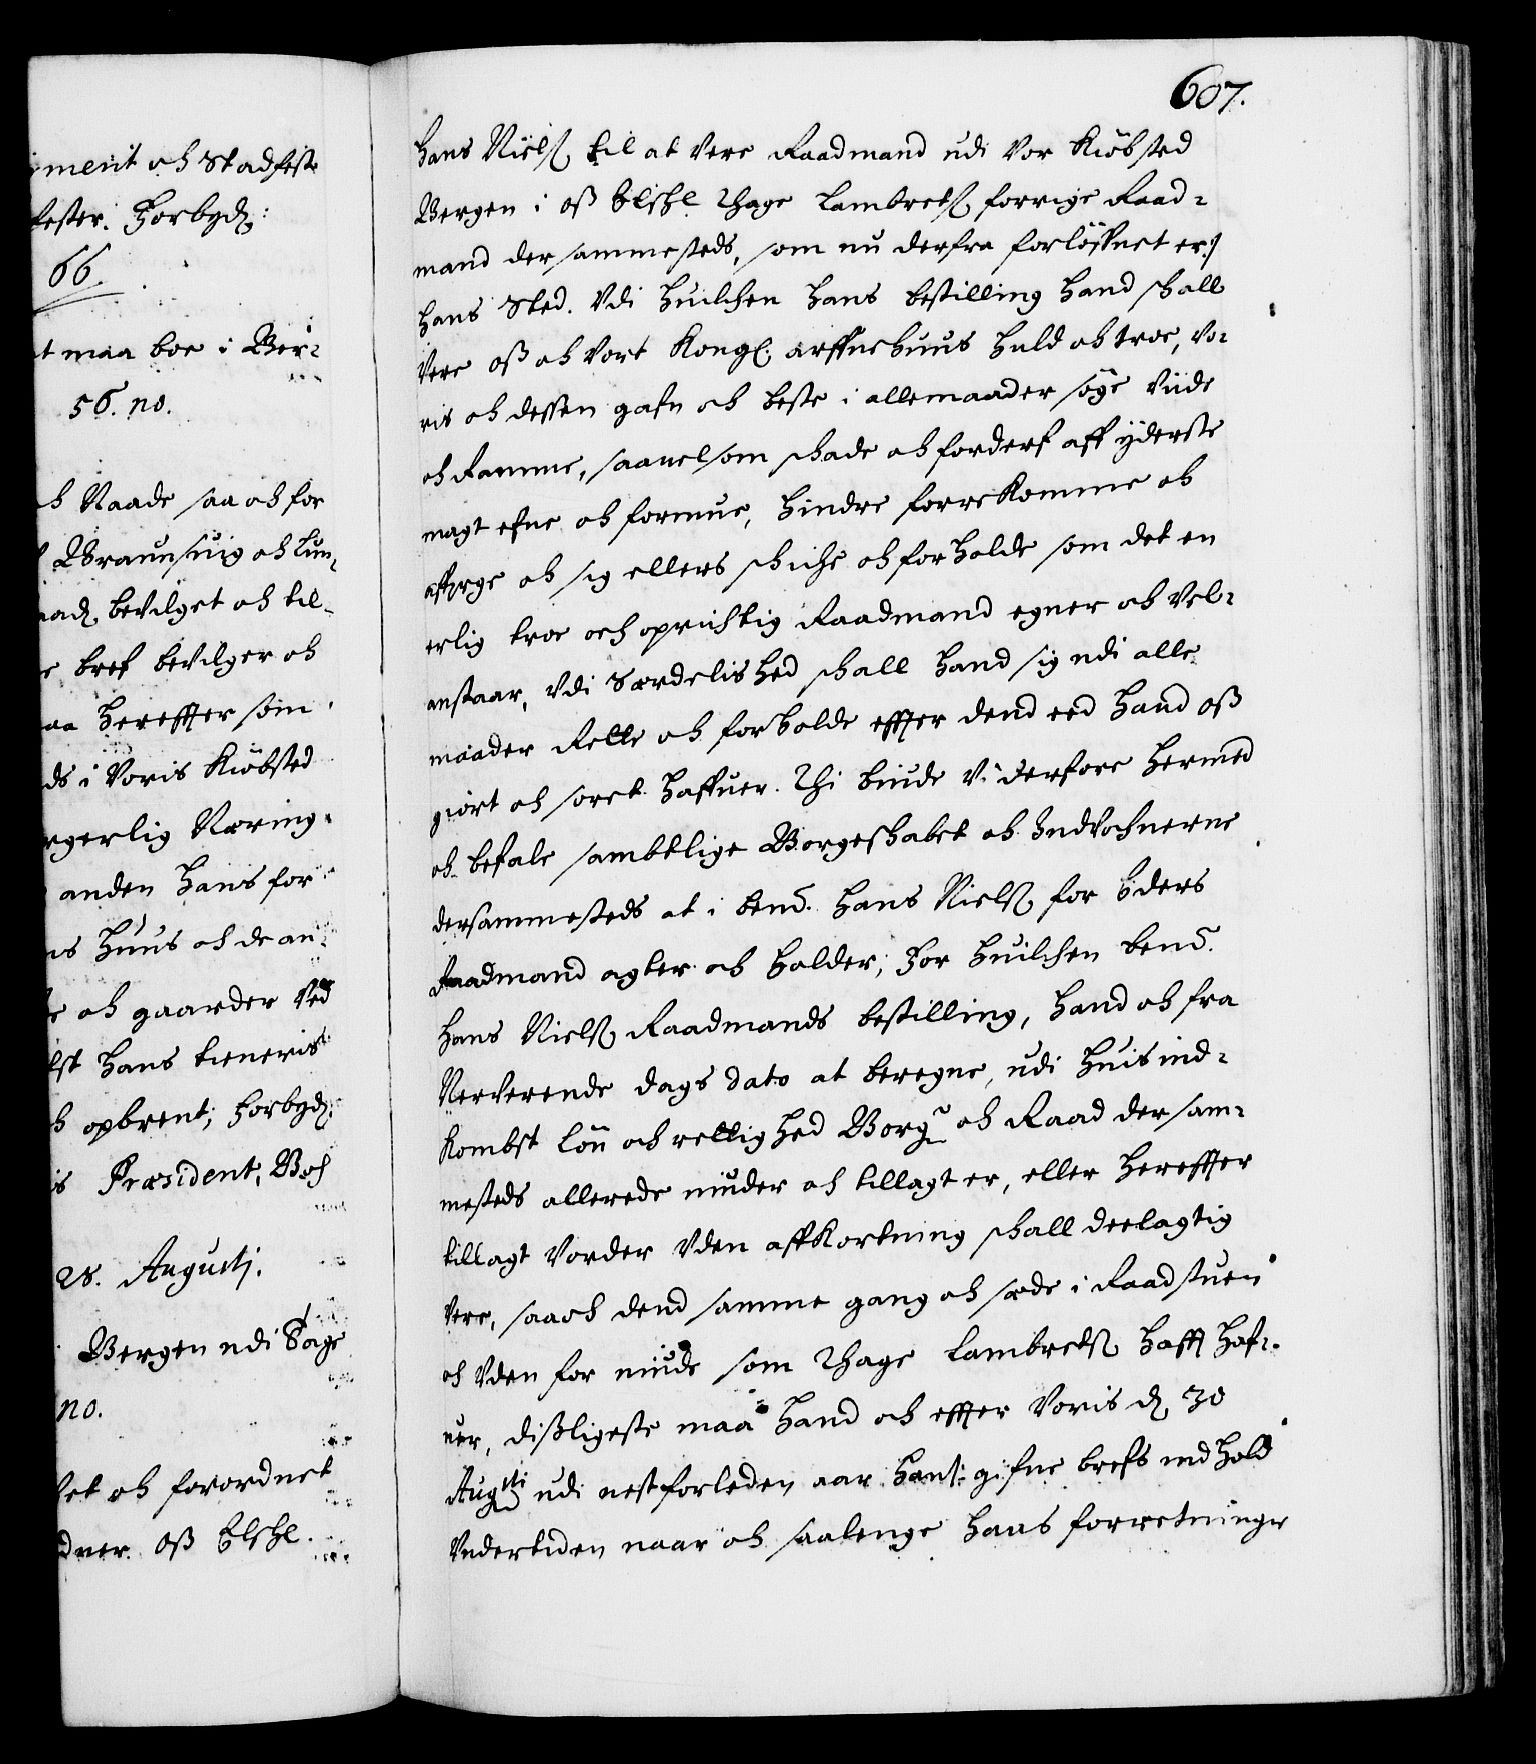 iment och Stadfeste
fester. Forbyd:
66.
t maa boe i Ber-
56. no.
h Naade saa och for
Braunsuig och Lun-
naad, bevilget och til-
e bref bevilger och
aa hereffter som
ds i Voris Kiøbsted
rgerlig Næring
anden hans for
ns Huus och de an-
e och gaarder ved
lst hans tieneris
h opbrent, Forbyd:
is Præsident, Bor
28. Augusti.
Bergen udi Sage
no.
et och forordnet
dner oss Elskl.
607.
Hans Niels: til at vere Raadmand udi vor Kiøbsted
Bergen i oß Elskl. Thage Lambrets: forrige Raad-
mand der sammesteds, som nu derfra forløffuet er,
hans Sted. Udi huilchen hans bestilling hand skall
vere oß och vort Kongl. arffuehuus huld och troe, vo-
ris och dessen gafn och beste i allemaader søge viide
och Ramme, saauelsom skade och forderf aff yderste
magt efne och formue, hindre forrekomme och
afverge och sig ellers skiche och forholde som det en
erlig troe och oprichtig Raadmand egner och vel-
anstaar, Udi Særdelished skall hand sig udi alle
maader Rette och forholde effter dend eed hand oß
giort och soret haffuer. Thi biude vi derfore hermed
och befale sambtlige Borgeskabet och Indvohnerne
dersammesteds at i bemt. Hans Niels: for Eders
Raadmand agter och holder, For huilchen bemt.
Hans Niels: Raadmands bestilling, hand och fra
Nerverende dags dato at beregne, udi huis ind-
kombst løn och rettighed Borgm. och Raad der sam-
mesteds allerede niuder och tillagt er, eller hereffter
tillagt vorder Uden affkortning skall deelagtig
vere, saa och dend samme gang och sæde i Raadstuen
och Uden for niude som Thage Lambrets: hafft haf-
uer, dißligeste maa hand och effter Voris d. 30
Augusti udi nestforleden aar hans: gifne brefs indhold
Undertiden naar och saalenge hans forretninger